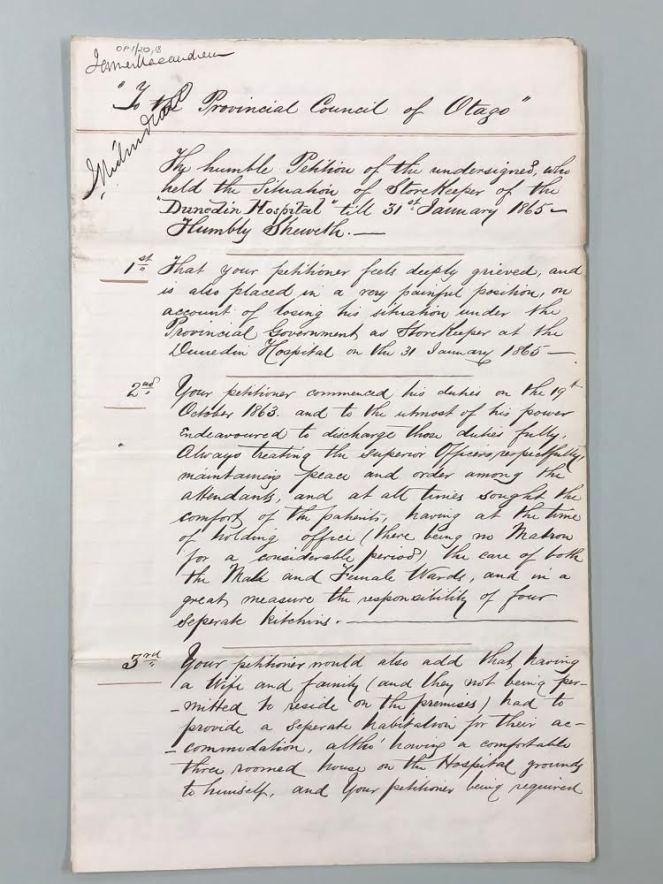 OP1/20,13
James Macandrew
"To the Provincial Council of Otago"
The humble Petition of the undersigned, who
held the Situation of StoreKeeper of the
"Dunedin Hospital" till 31st January 1865 –
Humbly Sheweth. —
1st That your petitioner feels deeply grieved, and
is also placed in a very painful position, on
account of losing his situation under the
Provincial Government as StoreKeeper at the
Dunedin Hospital on the 31 January 1865 —
2nd Your petitioner commenced his duties on the 19th
October 1863. and to the utmost of his power
Endeavoured to discharge those duties fully,
Always treating the superior Officers respectfully
maintaining peace and order among the
attendants, and at all times sought the
comfort of the patients, having at the time
of holding office (there being no Matron
for a considerable period) the care of both
the Male and Female Wards, and in a
great measure the responsibility of four
seperate kitchins. —
3rd Your petitioner would also add that having
a Wife and family (and they not being per-
-mitted to reside on the premises) had to
provide a seperate habitation for their ac-
-commodation, altho' having a comfortable
three roomed house on the Hospital grounds
to himself, and Your petitioner being required